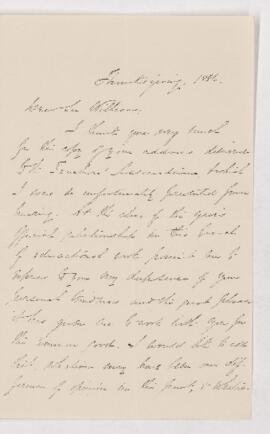 Thanksgiving, 1886.
Dear Mr Williams,
I thank you very much
for the copy of your address delivered
to the Teachers' Association which
I was so unfortunately prevented from
hearing. At the close of this year's
official relationship in this branch
of educational work permit me to
express to you my deep sense of your
personal kindness and the great pleasure
it has given me to work with you for
the common good. I would like to add
that, whatever may have been our dif-
ferences of opinion in the past, &